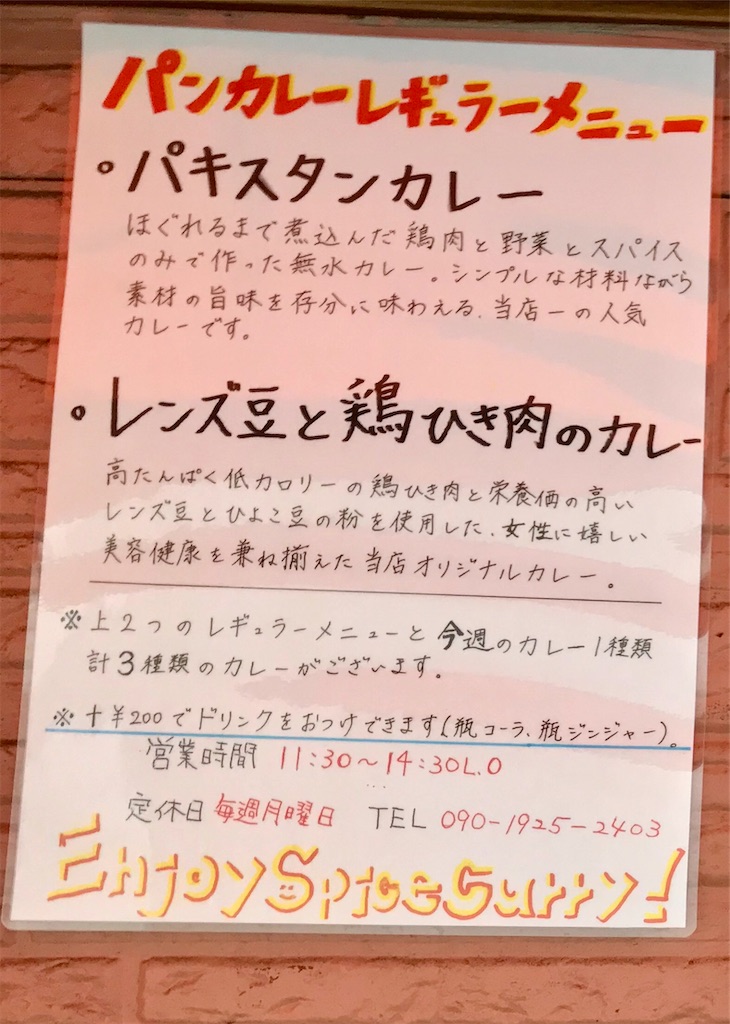 パンカレーレギュラーメニュー
。パキスタンカレー
ほぐれるまで煮込んだ鶏肉と野菜とスパイス
のみで作った無水カレー。シンプルな材料ながら
素材の旨味を存分に味わえる、当店一の人気
カレーです。
。レンズ豆と鶏ひき肉のカレー
高たんぱく低カロリーの鶏ひき肉と栄養価の高い
レンズ豆とひよこ豆の粉を使用した、女性に嬉しい
美容健康を兼ね揃えた当店オリジナルカレー。
※上2つのレギュラーメニューと今週のカレー1種類
計3種類のカレーがございます。
※+¥200でドリンクをおつけできます(瓶コーラ、瓶ジンジャー)。
営業時間 11:30~14:30L.O
定休日 毎週月曜日 TEL 090-1925-2403
Enjoy Spice Curry!